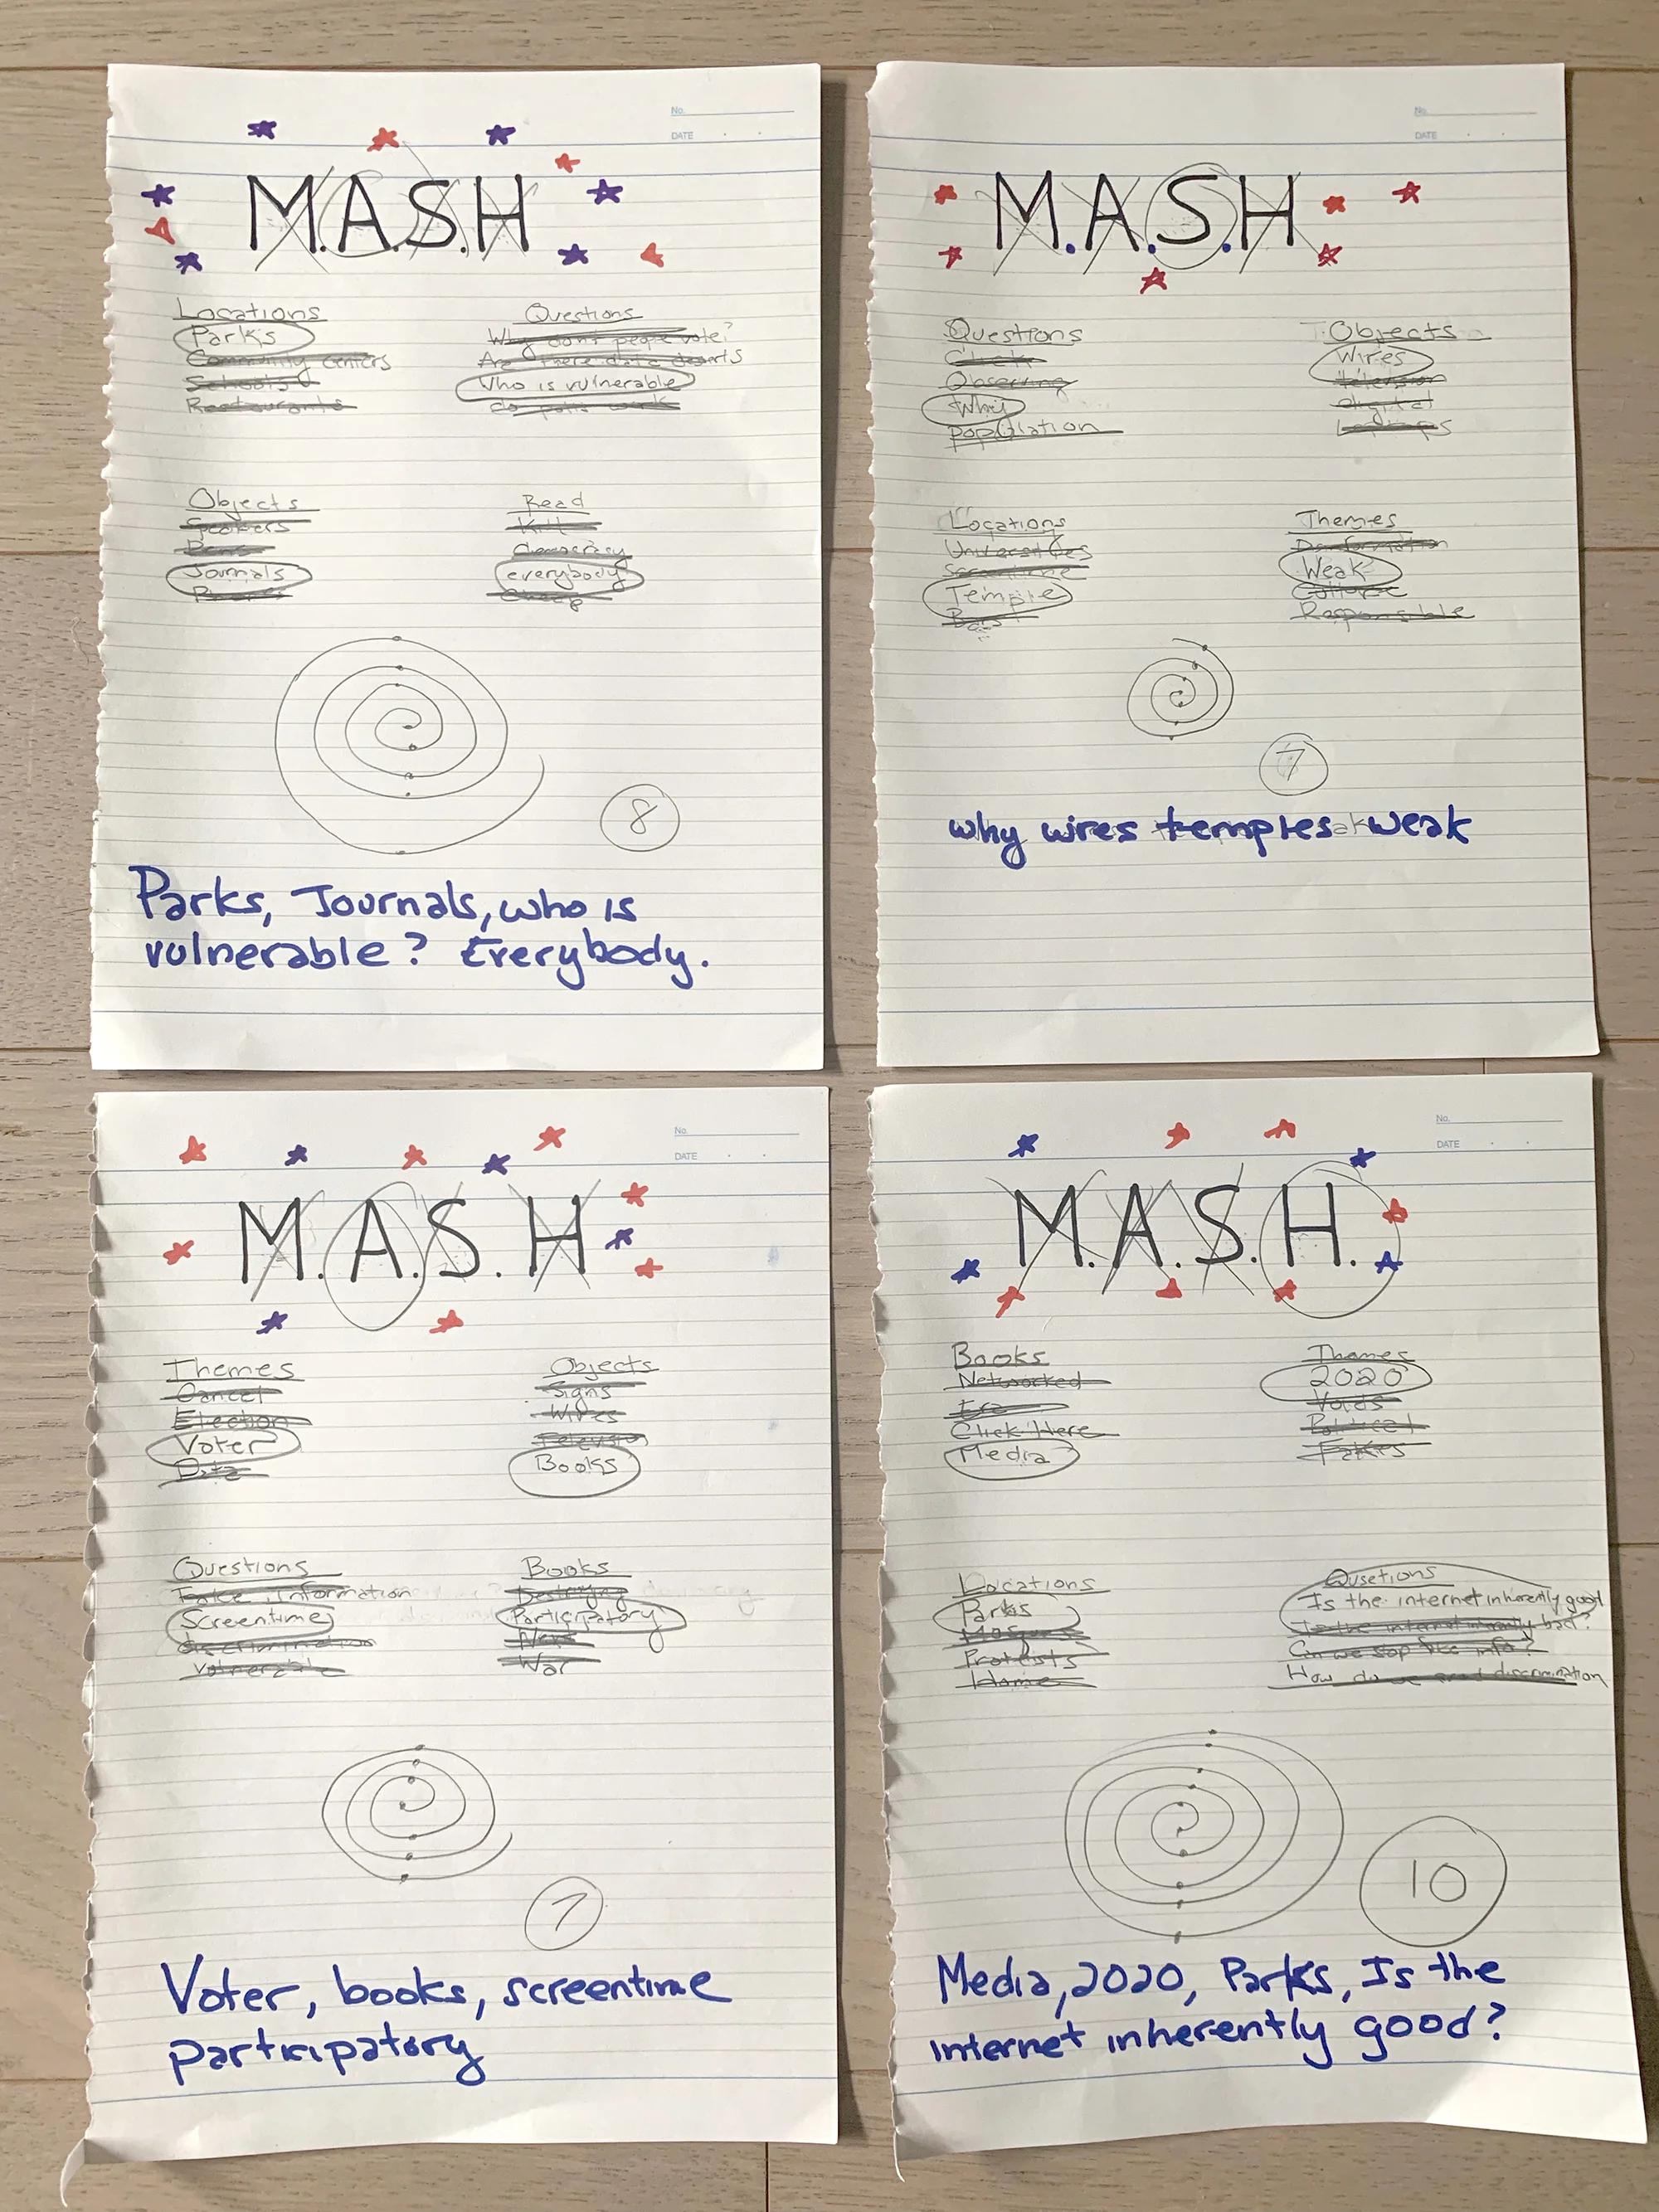 No.
DATE
M.A.S.H
Locations
Parks
Community Centers
Schools
Restaurants
Questions
Why don't people vote?
Are there data deserts
Who is vulnerable
do polls work
Objects
Speakers
Pens
Journals
Phones
Read
Kill
democracy
everybody
Cheap
8
Parks, Journals, who is
vulnerable? Everybody.
No.
DATE
M.A.S.H
Questions
Click
Observing
Why
Population
Objects
Wires
television
digital
Locations
Universities
Temple
Bars
Themes
Weak
Culture
Responsible
7
why wires temples weak
No.
DATE
M.A.S.H
Themes
Cancel
Election
Voter
Data
Objects
Signs
Wires
Television
Books
Questions
Fake Information
Screentime
discrimination
Vulnerable
Books
Destroying
Participatory
News
War
7
Voter, books, screentime
participatory
No.
DATE
M.A.S.H.
Books
Networked
Era
Click Here
Media
Themes
2020
Voids
Political
Fakes
Locations
Parks
Mosques
Protests
Home
Qusetions
Is the internet inherently good
Is the internet inherently bad?
Can we stop fake info?
How do we end discrimination
10
Media, 2020, Parks, Is the
internet inherently good?